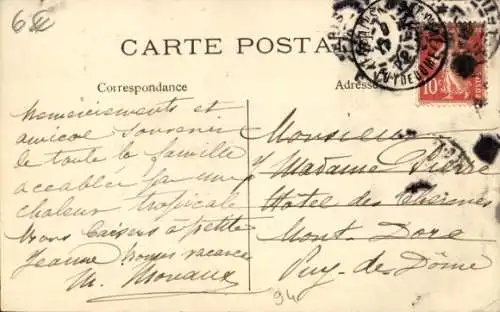 6
CARTE POSTALE
Correspondance
Adresse
PUY DE DOME
10
Remerciements et
amical souvenir
de toute la famille
accablée par une
chaleur tropicale
Bons baisers à petite
Jeanne bonnes vacances
M. Moreaux
Monsieur
Madame Pierre
Hôtel des Thermes
Mont-Dore
Puy-de-Dôme
94